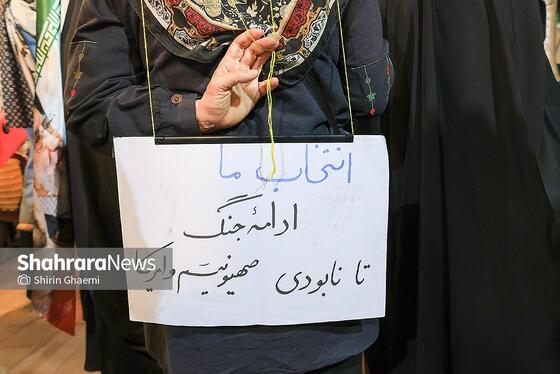 انتخاب ما
ادامهٔ جنگ
تا نابودی صهیونیسم و امریکا
ShahraraNews
© Shirin Ghaemi